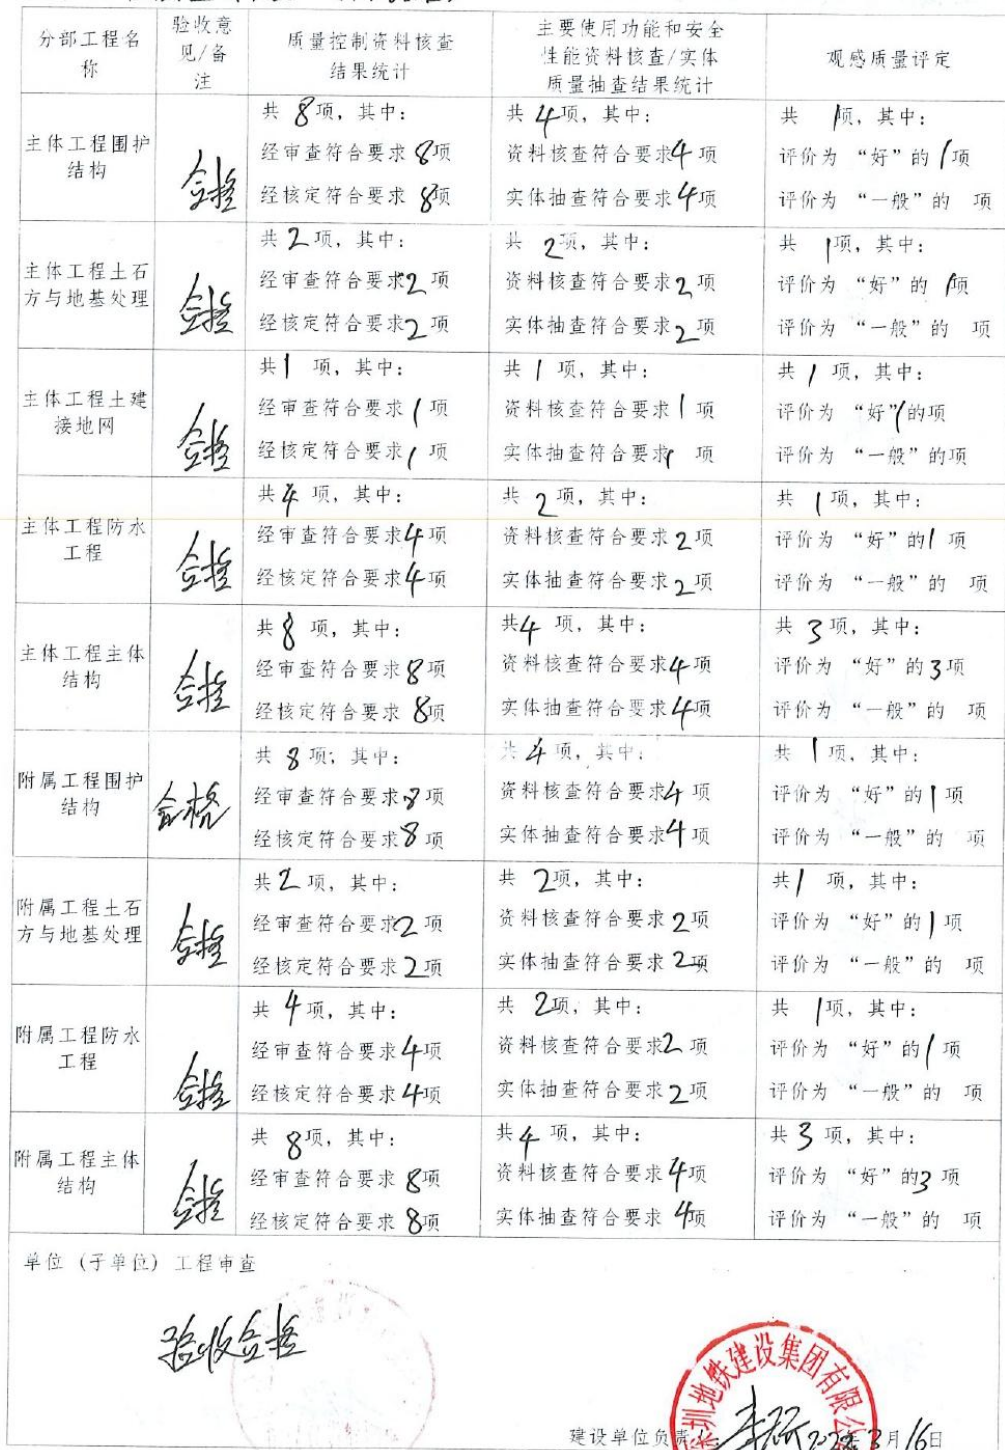 分部工程名称
验收意见/备注
质量控制资料核查
结果统计
主要使用功能和安全
性能资料核查/实体
质量抽查结果统计
观感质量评定
主体工程围护
结构
合格
共 8项，其中：
经审查符合要求 8项
经核定符合要求 8项
共 4项，其中：
资料核查符合要求4 项
实体抽查符合要求4项
共 1项，其中：
评价为 “好”的 1项
评价为 “一般”的 项
主体工程土石
方与地基处理
合格
共 2 项，其中：
经审查符合要求2 项
经核定符合要求2 项
共 2项，其中：
资料核查符合要求2 项
实体抽查符合要求2项
共 1项，其中：
评价为 “好”的 1项
评价为 “一般”的 项
主体工程土建
接地网
合格
共1 项，其中：
经审查符合要求1 项
经核定符合要求1 项
共 1 项，其中：
资料核查符合要求1 项
实体抽查符合要求1 项
共 1 项，其中：
评价为 “好”1的项
评价为 “一般”的项
主体工程防水
工程
合格
共4 项，其中：
经审查符合要求4项
经核定符合要求4项
共 2项，其中：
资料核查符合要求2项
实体抽查符合要求2项
共 1项，其中：
评价为 “好”的1 项
评价为 “一般”的 项
主体工程主体
结构
合格
共8 项，其中：
经审查符合要求8项
经核定符合要求 8项
共4 项，其中：
资料核查符合要求4项
实体抽查符合要求4项
共 3项，其中：
评价为 “好”的3项
评价为 “一般”的 项
附属工程围护
结构
合格
共 8 项；其中：
经审查符合要求8 项
经核定符合要求8 项
共 4 项，其中：
资料核查符合要求4 项
实体抽查符合要求4 项
共 1 项，其中：
评价为 “好”的1项
评价为 “一般”的 项
附属工程土石
方与地基处理
合格
共2 项，其中：
经审查符合要求2 项
经核定符合要求2项
共 2项，其中：
资料核查符合要求2项
实体抽查符合要求2项
共1 项，其中：
评价为 “好”的1项
评价为 “一般”的 项
附属工程防水
工程
合格
共 4项，其中：
经审查符合要求4项
经核定符合要求4项
共 2项，其中：
资料核查符合要求2 项
实体抽查符合要求2项
共 1项，其中：
评价为 “好”的1 项
评价为 “一般”的 项
附属工程主体
结构
合格
共 8项，其中：
经审查符合要求 8项
经核定符合要求 8项
共4 项，其中：
资料核查符合要求4项
实体抽查符合要求 4项
共3 项，其中：
评价为 “好”的3 项
评价为 “一般”的 项
单位（子单位）工程审查
验收合格
深圳地铁建设集团有限公
建设单位负责人：
年3月16日